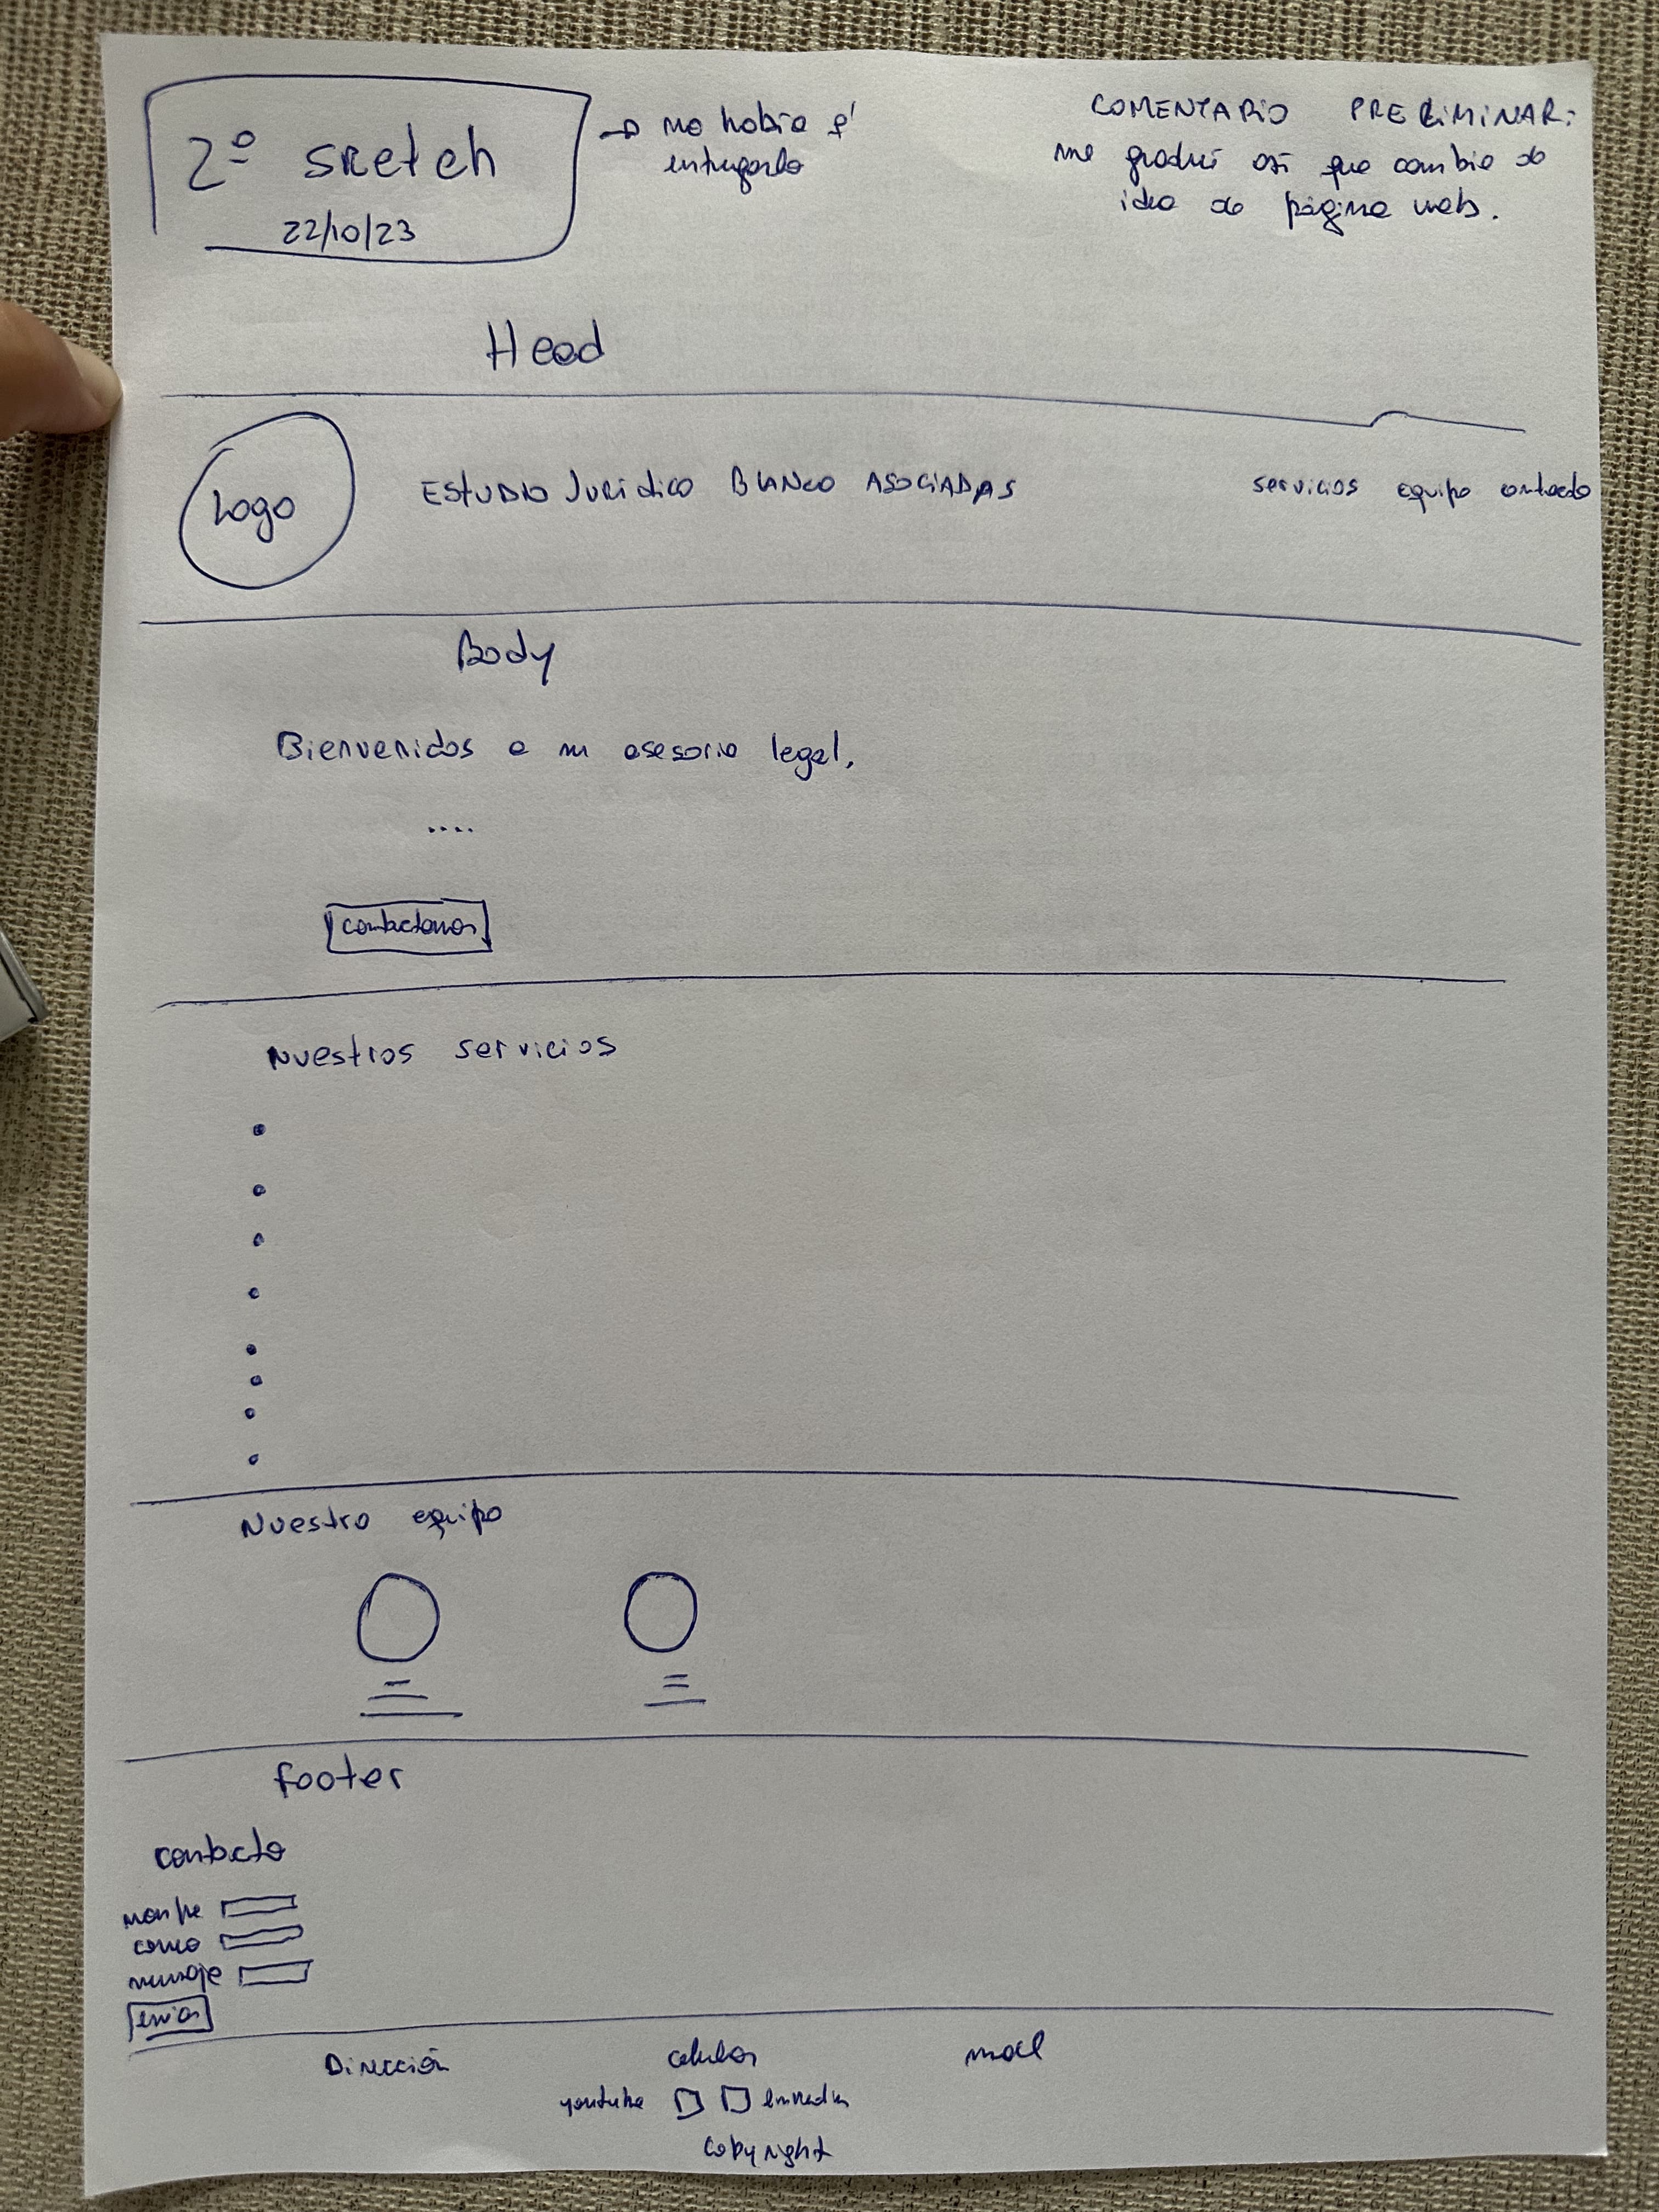 2º sketch
22/10/23
→ no había q'
entregarlo
COMENTARIO PRELIMINAR:
me gradué así que cambio de
idea de página web.
Head
Logo
ESTUDIO JURÍDICO BLANCO ASOCIADAS
servicios equipo contacto
Body
Bienvenidos a mi asesoria legal.
....
contactanos
Nuestros servicios
Nuestro equipo
footer
contacto
nombre
correo
mensaje
enviar
Dirección
celular
mail
youtube
linkedin
copyright